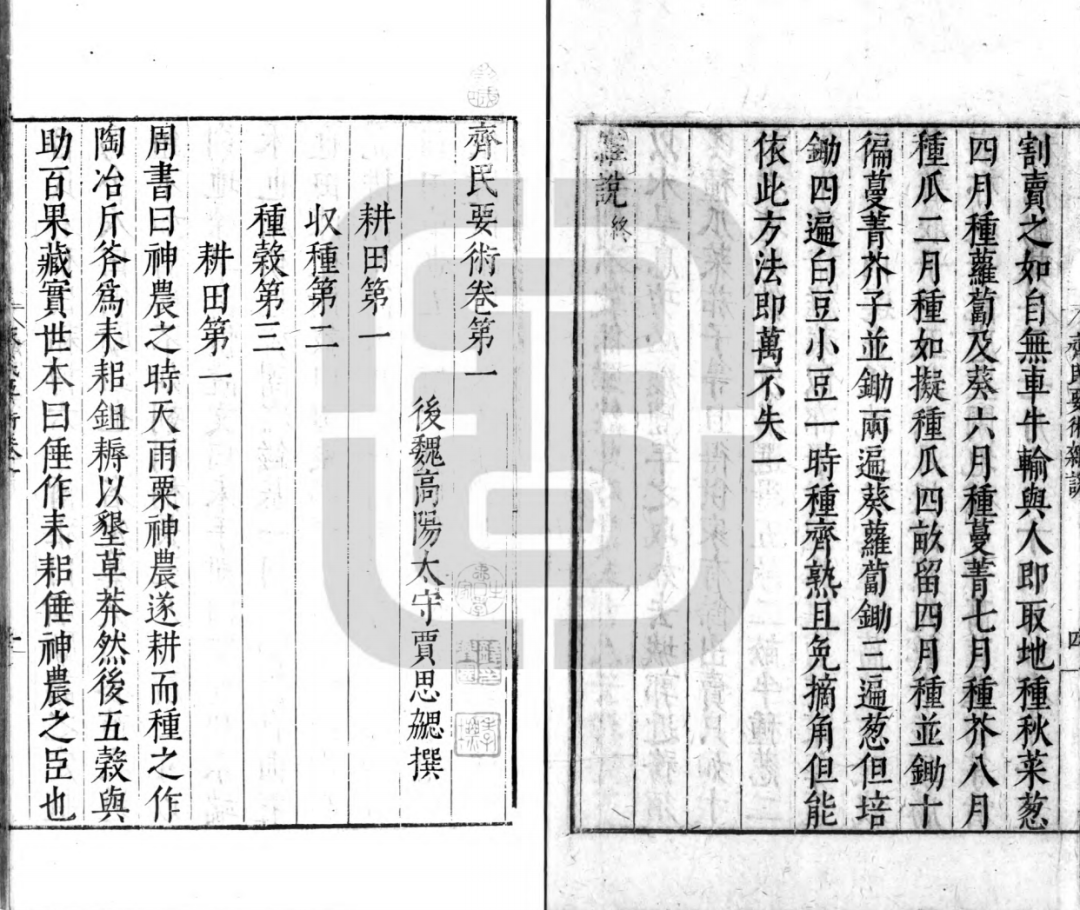 割賣之如自無車牛輸與人即取地種秋菜葱
四月種蘿蔔及葵六月種蔓菁七月種芥八月
種瓜二月種如擬種瓜四畝留四月種並鋤十
徧蔓菁芥子並鋤兩遍葵蘿蔔鋤三遍葱但培
鋤四遍白豆小豆一時種齊熟且免摘角但能
依此方法即萬不失一
雜說終
齊民要術雜說
四
齊民要術卷第一
後魏高陽太守賈思勰撰
耕田第一
収種第二
種穀第三
耕田第一
周書曰神農之時天雨粟神農遂耕而種之作
陶冶斤斧為耒耜鉏耨以墾草莽然後五穀與
助百果藏實世本曰倕作耒耜倕神農之臣也